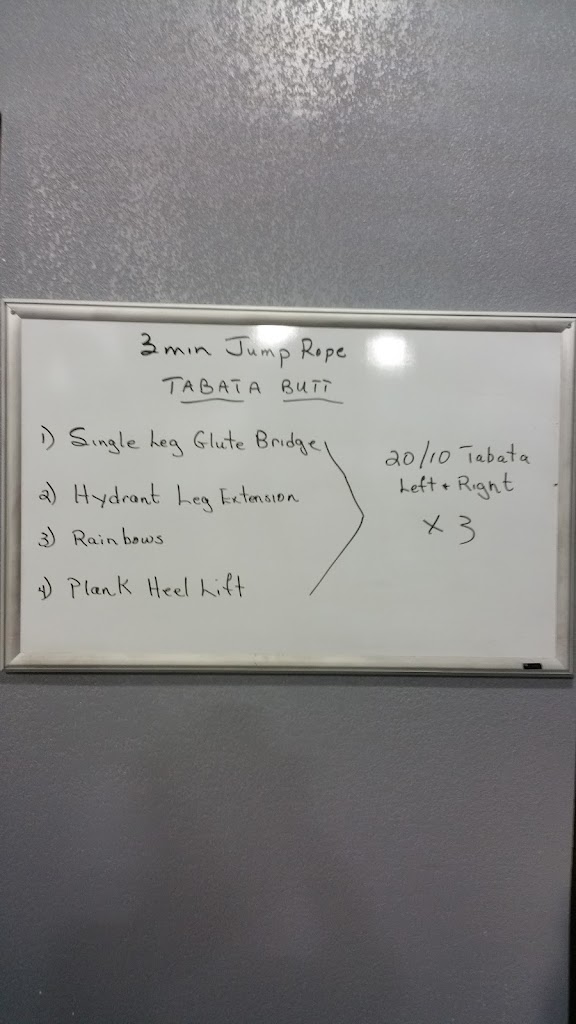 3 min Jump Rope
TABATA BUTT
1) Single Leg Glute Bridge
2) Hydrant Leg Extension
3) Rainbows
4) Plank Heel Lift
20/10 Tabata
Left + Right
x 3